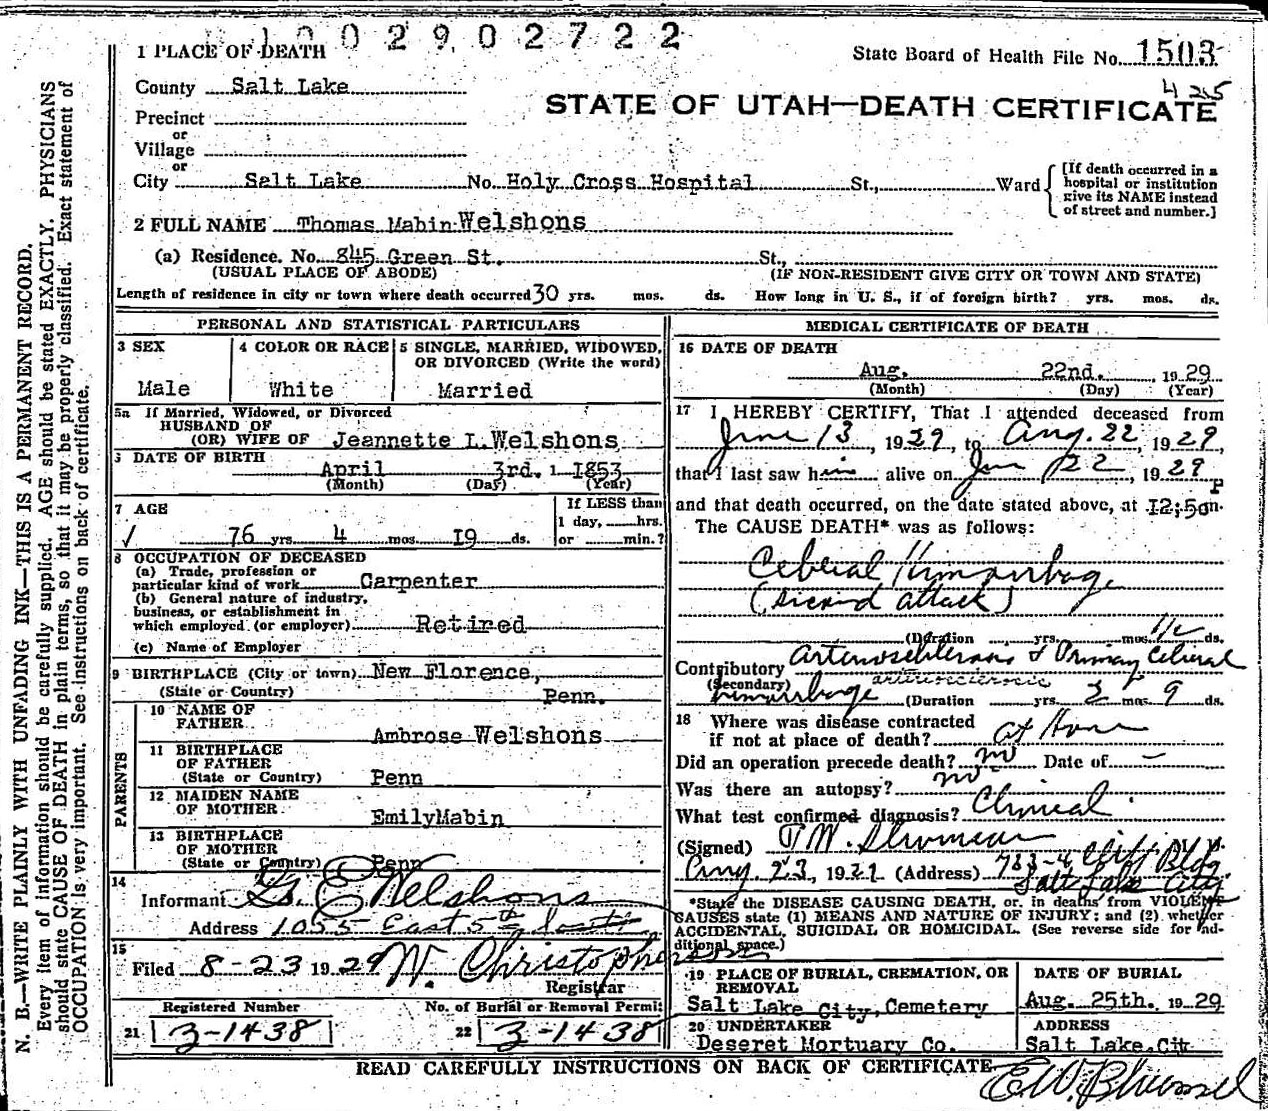 1002902722
1 PLACE OF DEATH
State Board of Health File No. 1503
425
County Salt Lake
STATE OF UTAH—DEATH CERTIFICATE
Precinct
or
Village
or
City Salt Lake No. Holy Cross Hospital St., Ward
[If death occurred in a
hospital or institution
give its NAME instead
of street and number.]
2 FULL NAME Thomas Mabin Welshons
(a) Residence. No. 845 Green St. St.,
(USUAL PLACE OF ABODE) (IF NON-RESIDENT GIVE CITY OR TOWN AND STATE)
Length of residence in city or town where death occurred 30 yrs. mos. ds. How long in U. S., if of foreign birth? yrs. mos. ds.
PERSONAL AND STATISTICAL PARTICULARS
3 SEX 4 COLOR OR RACE 5 SINGLE, MARRIED, WIDOWED,
OR DIVORCED (Write the word)
Male White Married
5a If Married, Widowed, or Divorced
HUSBAND OF
(OR) WIFE OF Jeannette L. Welshons
DATE OF BIRTH
April 3rd. 1853
(Month) (Day) (Year)
7 AGE If LESS than
1 day, hrs.
76 yrs. 4 mos. 19 ds. or min.?
8 OCCUPATION OF DECEASED
(a) Trade, profession or
particular kind of work Carpenter
(b) General nature of industry,
business, or establishment in
which employed (or employer) Retired
(c) Name of Employer
9 BIRTHPLACE (City or town) New Florence,
(State or Country) Penn.
PARENTS
10 NAME OF
FATHER Ambrose Welshons
11 BIRTHPLACE
OF FATHER
(State or Country) Penn
12 MAIDEN NAME
OF MOTHER EmilyMabin
13 BIRTHPLACE
OF MOTHER
(State or Country) Penn
14
Informant G. E. Welshons
Address 1055 East 5th South
15
Filed 8-23 1929 W. Christopherson
Registrar
Registered Number No. of Burial or Removal Permit
21 3-1438 22 3-1438
MEDICAL CERTIFICATE OF DEATH
16 DATE OF DEATH
Aug. 22nd. , 1929
(Month) (Day) (Year)
17 I HEREBY CERTIFY, That I attended deceased from
June 13, 1929, to Aug. 22, 1929
that I last saw him alive on 22, 1929
P
and that death occurred, on the date stated above, at 12:50 m.
The CAUSE DEATH* was as follows:
Cebral Himorrhage
(second attack)
(Duration yrs. mos. ds.
Contributory & Primary Cebral
(Secondary) himorrhage (Duration yrs. 2 mos. 9 ds.
18 Where was disease contracted
if not at place of death? at Home
Did an operation precede death? no Date of –
Was there an autopsy? no
What test confirmed diagnosis? Clinical
(Signed) M. D.
Aug. 23, 1929 (Address) Cliff Bldg
Salt Lake City
*State the DISEASE CAUSING DEATH, or, in deaths from VIOLENT
CAUSES state (1) MEANS AND NATURE OF INJURY; and (2) whether
ACCIDENTAL, SUICIDAL OR HOMICIDAL. (See reverse side for ad-
ditional space.)
19 PLACE OF BURIAL, CREMATION, OR
REMOVAL
Salt Lake City, Cemetery
DATE OF BURIAL
Aug. 25th. 1929
20 UNDERTAKER
Deseret Mortuary Co.
ADDRESS
Salt Lake, Cit
READ CAREFULLY INSTRUCTIONS ON BACK OF CERTIFICATE
N. B.—WRITE PLAINLY WITH UNFADING INK—THIS IS A PERMANENT RECORD.
Every item of information should be carefully supplied. AGE should be stated EXACTLY. PHYSICIANS
should state CAUSE OF DEATH in plain terms, so that it may be properly classified. Exact statement of
OCCUPATION is very important. See instructions on back of certificate.